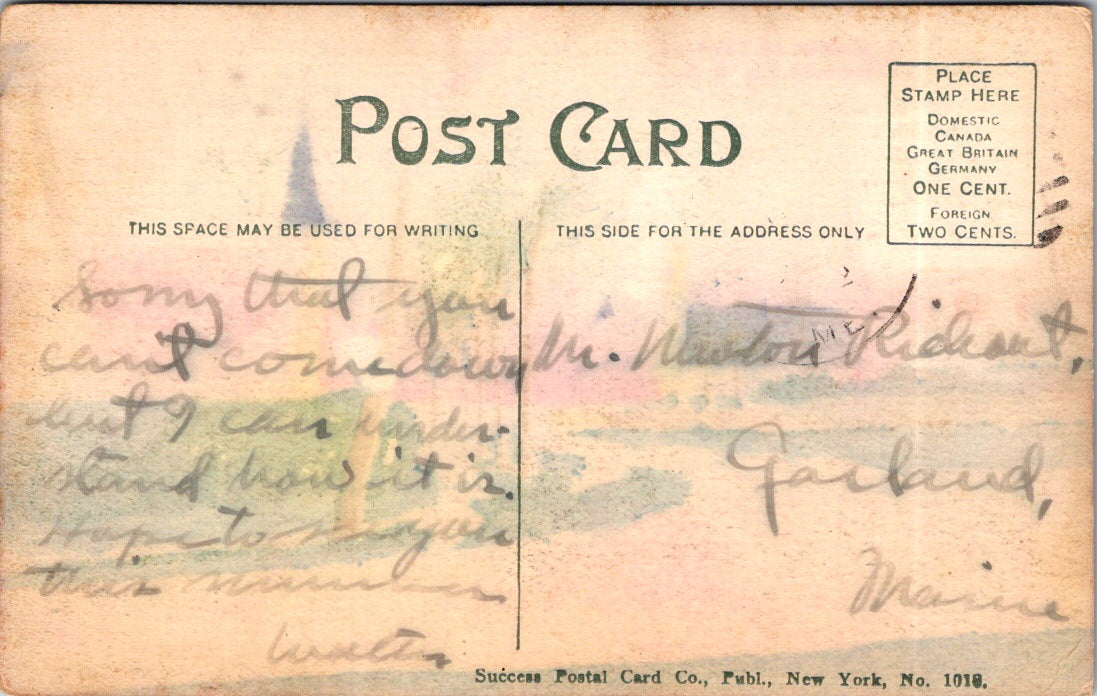 POST CARD
PLACE
STAMP HERE
DOMESTIC
CANADA
GREAT BRITAIN
GERMANY
ONE CENT.
FOREIGN
TWO CENTS.
THIS SPACE MAY BE USED FOR WRITING
THIS SIDE FOR THE ADDRESS ONLY
Sorry that you
can't come down
but I can under-
stand how it is.
Hope to you
this summer
Walter
ME.
Mr. Newton Rideout,
Garland,
Maine
Success Postal Card Co., Publ., New York, No. 1018.